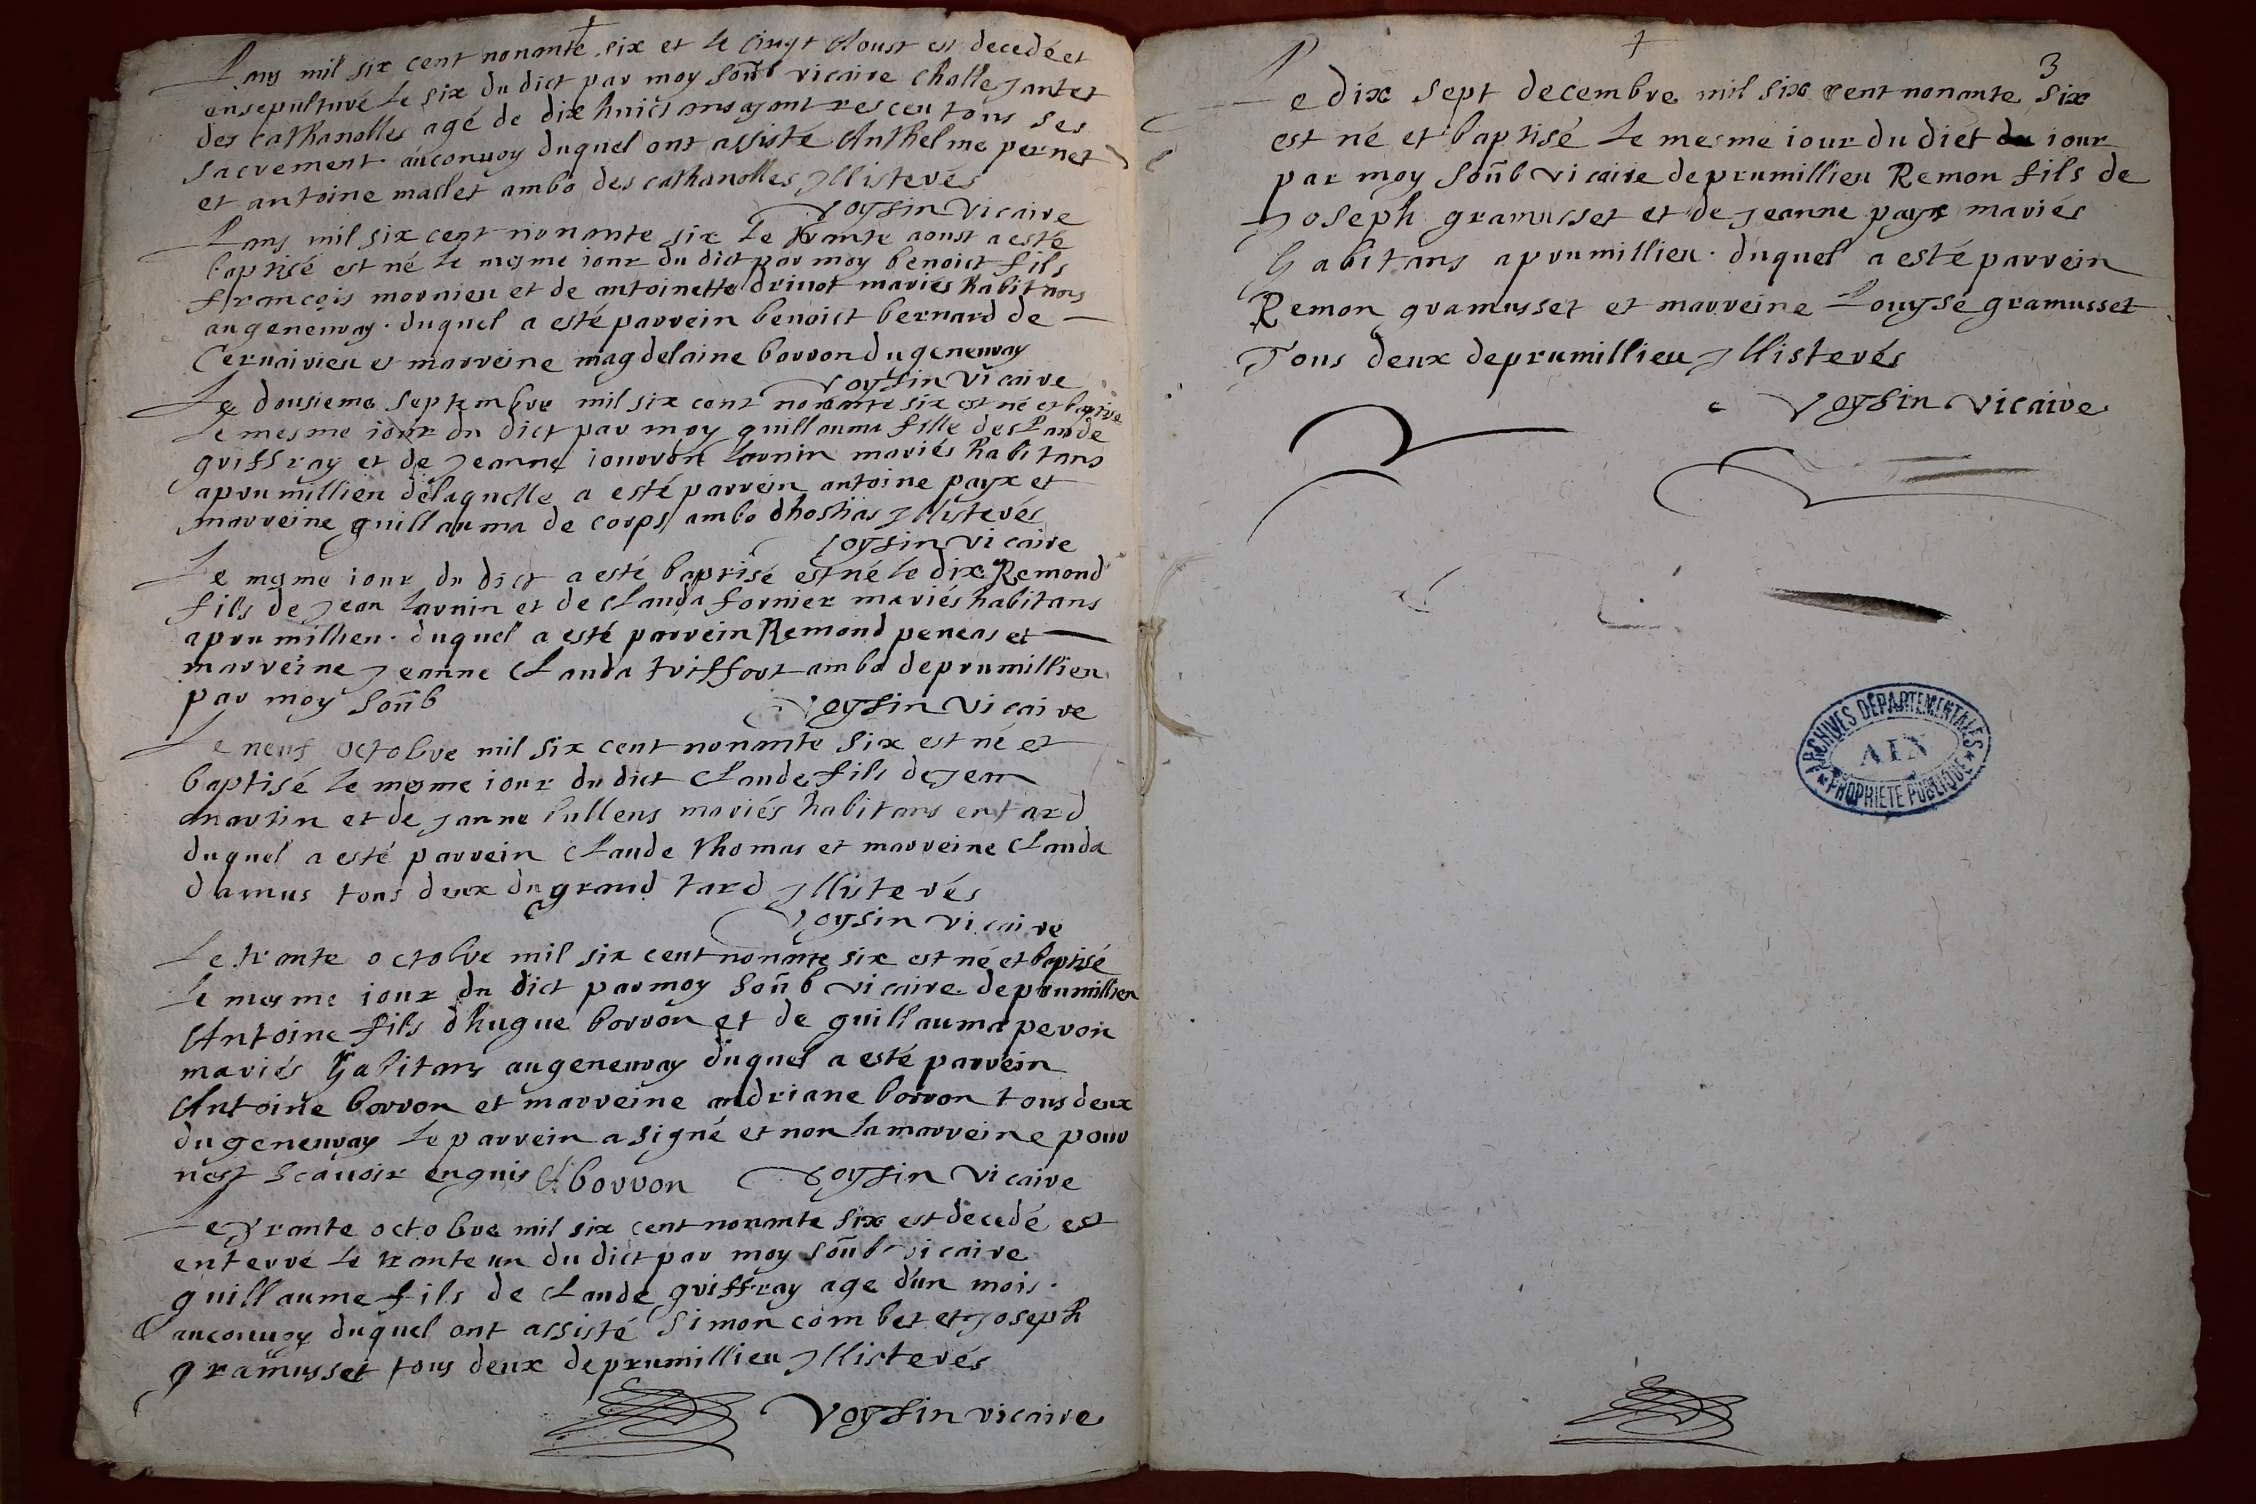 Lans mil six cent nonante six et le cinqt Aoust est decedé et
ensepulturé le six du dict par moy soub vicaire Challe Jantet
des cathanolles agé de dix huict ans ayant resceu tous ses
sacrement. auconuoy duquel ont assisté Anthelme pernet
et antoine mallet ambo des cathanolles Jllisterés
Voysin vicaire
Lans mil six cent nonante six le trante aoust a esté
baptisé est né le mesme iour du dict par moy benoict fils
francois mornieu et de antoinette drivot mariés habitans
au geneuray. duquel a esté parrein benoict bernard de
Ceruairieu et marreine magdelaine borron du geneuray
Voysin vicaire
Le dousieme septembre mil six cent nonante six est né et
le mesme iour du dict par moy guillauma fille de Claude
griffray et de Jeanne iouvron larnin mariés habitans
a prumillieu delaquelle a esté parrein antoine payx et
marreine guillauma de corps ambo dhostias Jllisterés
Voysin vicaire
Le mesme iour du dict a esté baptisé est né le dix Remond
fils de Jean larnin et de Clauda fornier mariés habitans
a prumillieu. duquel a esté parrein Remond peneas et
marreine Jeanne Clauda triffort ambo de prumillieu
par moy soub
Voysin vicaire
Le neuf octobre mil six cent nonante six est né et
baptisé le mesme iour du dict Claude fils de Jean
martin et de Janne bullens mariés habitans en tard
duquel a esté parrein Claude thomas et marreine Clauda
damus tous deux du grand tard Jllisterés
Voysin vicaire
Le trante octobre mil six cent nonante six est né et baptisé
le mesme iour du dict par moy soub vicaire de prumillieu
Antoine fils dhugue borron et de guillauma peroin
mariés habitans au geneuray duquel a esté parrein
Antoine borron et marreine andriane borron tous deux
du geneuray le parrein a signé et non la marreine pour
nest scauoir enquis A borron Voysin vicaire
Le trante octobre mil six cent nonante six est decedé est
enterré le trante un du dict par moy soub vicaire
guillaume fils de Claude griffray age d'un mois.
auconuoy duquel ont assisté Simon combet et Joseph
gramusset tous deux de prumillieu Jllisterés
Voysin vicaire
3
Le dix sept decembre mil six cent nonante six
est né et baptisé le mesme iour du dict iour
par moy soub vicaire de prumillieu Remon fils de
Joseph gramusset et de Jeanne payx mariés
habitans a prumillieu. duquel a esté parrein
Remon gramusset et marreine Louyse gramusset
Tous deux de prumillieu Jllisterés
Voysin vicaire
ARCHIVES DÉPARTEMENTALES
AIN
PROPRIÉTÉ PUBLIQUE